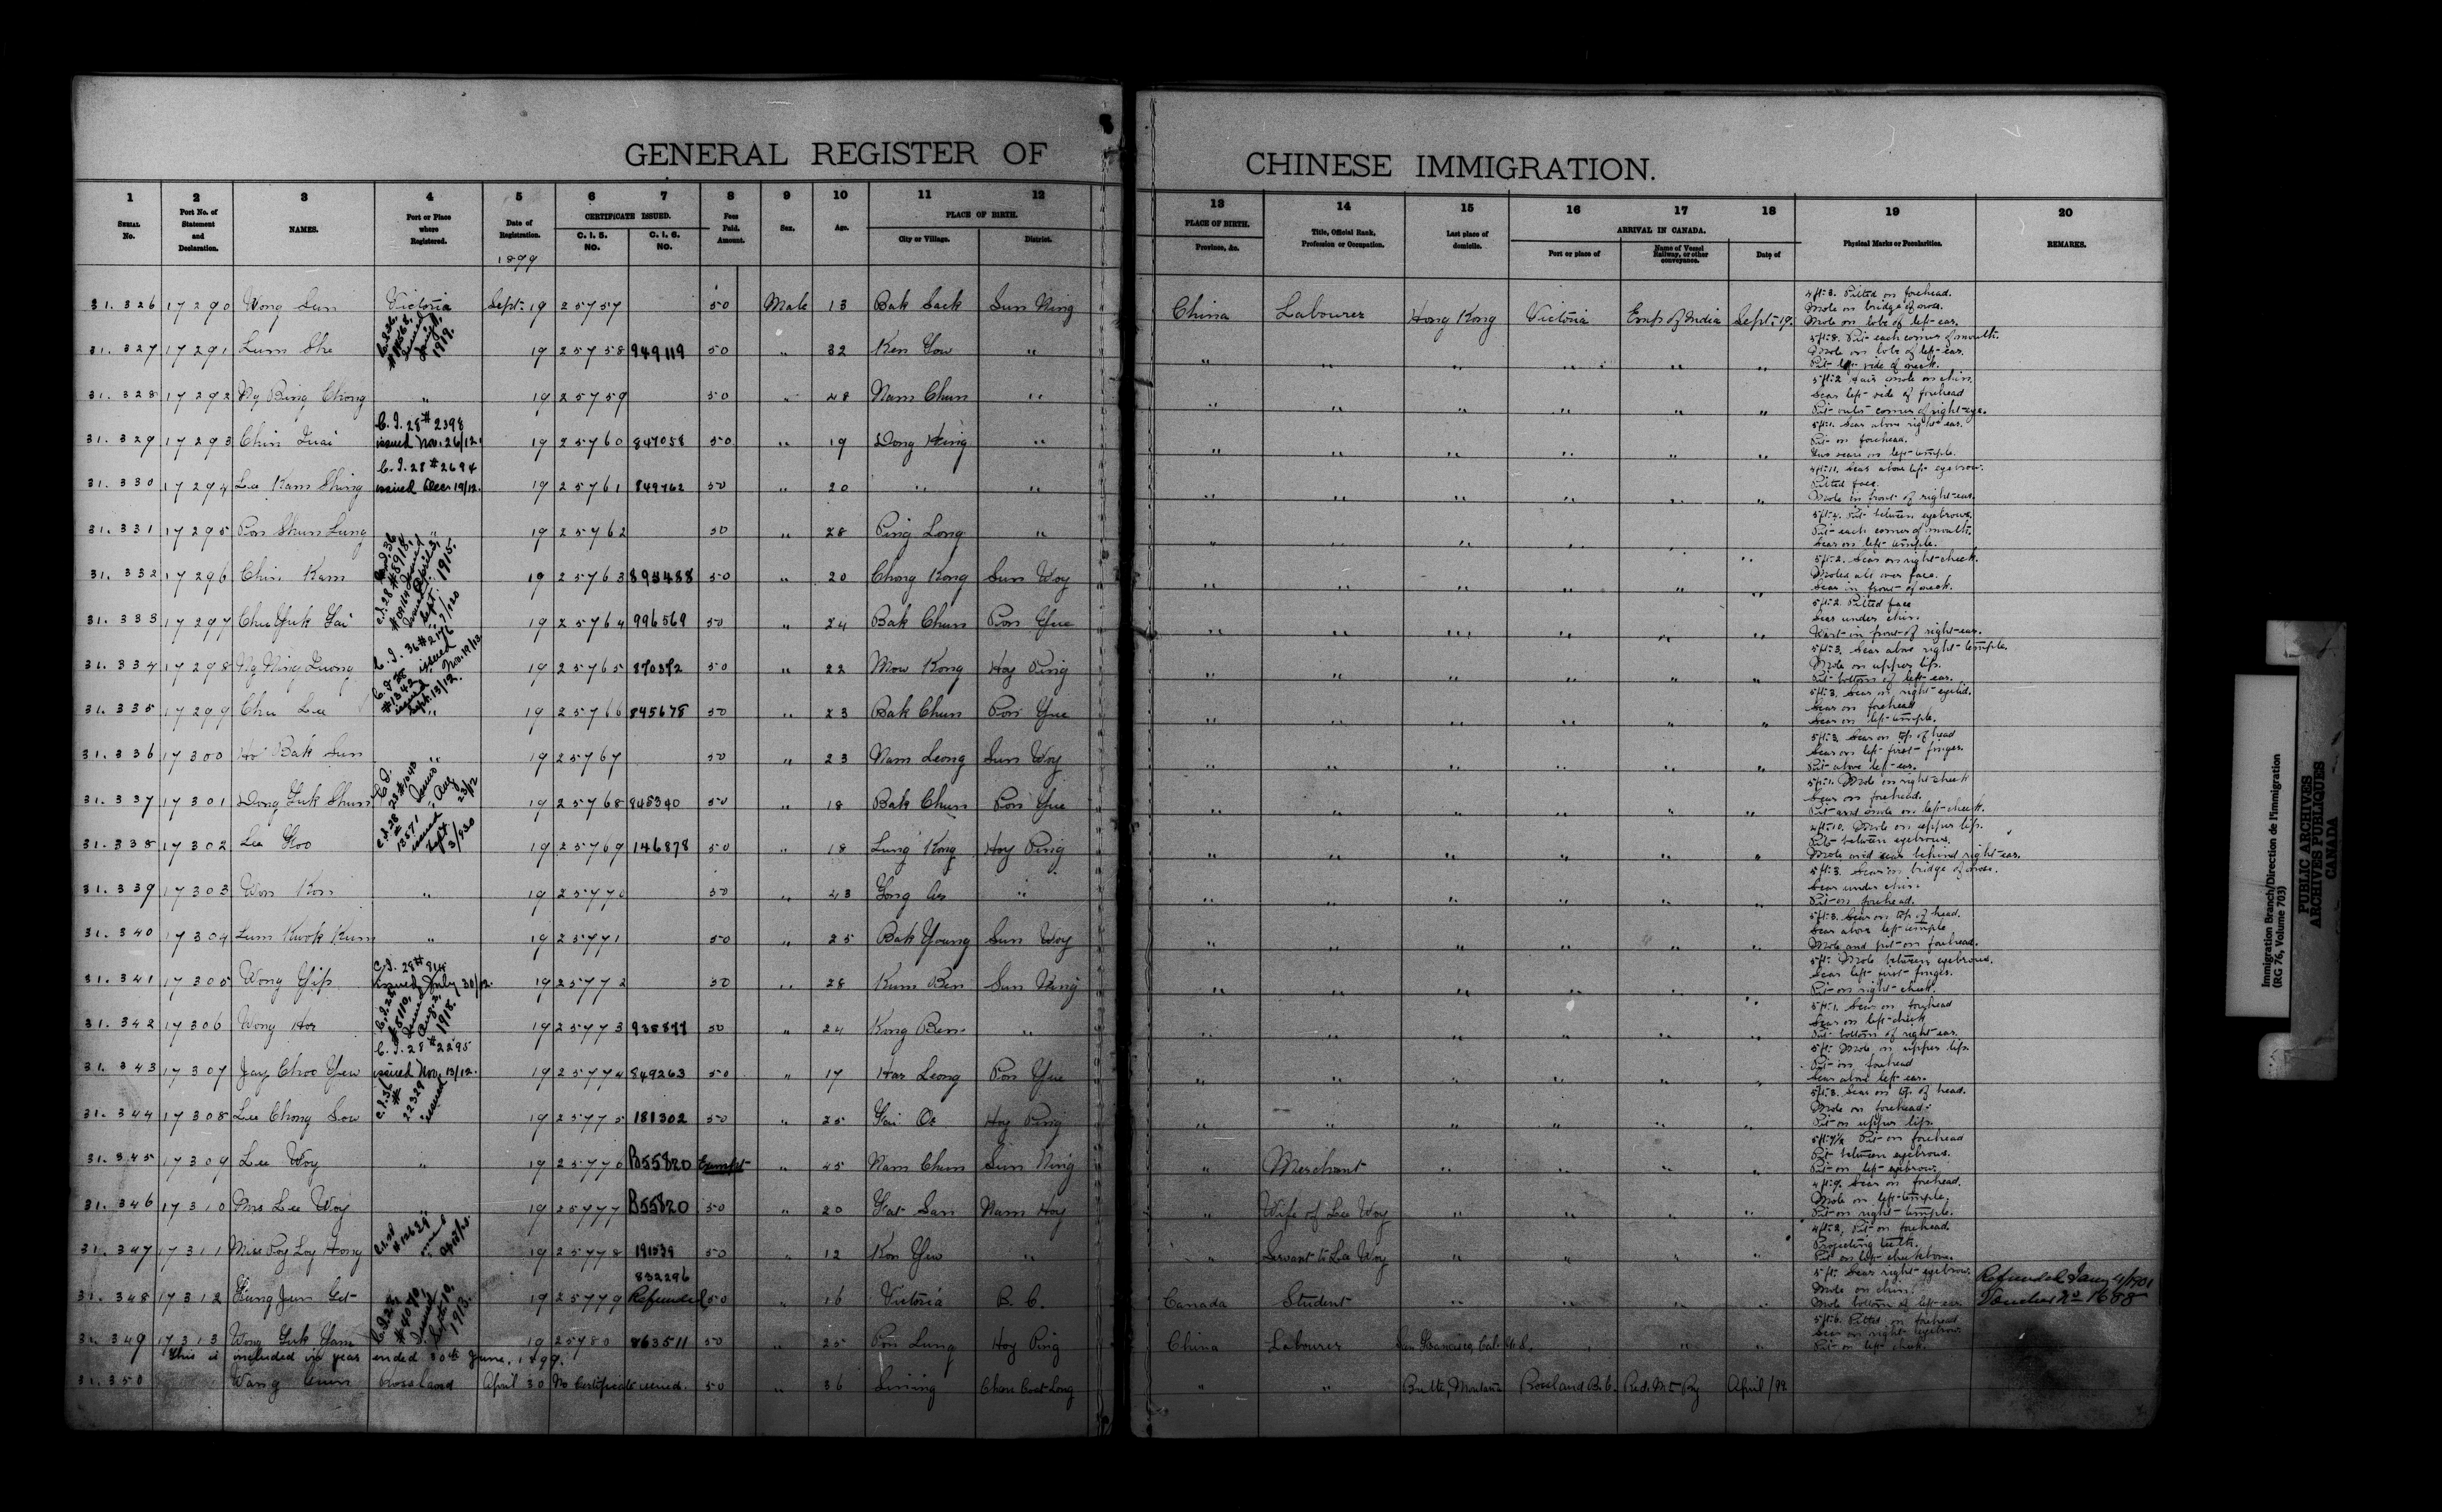 GENERAL REGISTER OF CHINESE IMMIGRATION.
1 2 3 4 5 6 7 8 9 10 11 12 13 14 15 16 17 18 19 20
SERIAL No. Port No. of Statement and Declaration. NAMES. Port or Place where Registered. Date of Registration. CERTIFICATE ISSUED. C. I. 5. NO. C. I. 6. NO. Fees Paid. Amount. Sex. Age. PLACE OF BIRTH. City or Village. District. PLACE OF BIRTH. Province, &c. Title, Official Rank, Profession or Occupation. Last place of domicile. ARRIVAL IN CANADA. Port or place of Name of Vessel Railway, or other conveyance. Date of Physical Marks or Peculiarities. REMARKS.
1899
31.326 17290 Wong Sun Victoria Sept. 19 25757 50 Male 13 Bak Sack Sun Ning China Labourer Hong Kong Victoria Emp of India Sept. 19. 4ft. 3. Pitted on forehead. Mole on bridge of nose. Mole on lobe of left ear.
31.327 17291 Lum She 1919. 19 25758 949119 50 " 32 Ken Yow " " " " " " " 5ft. 8. Pit each corner of mouth. Mole on lobe of left ear. Pit left side of neck.
31.328 17292 Ng Bing Chong " 19 25759 50 " 48 Nam Chun " " " " " " " 5ft. 2. Hair mole on chin. Scar left side of forehead Pit outer corner of right eye.
31.329 17293 Chin Quai C.I. 28 # 2398 issued Nov. 26/12. 19 25760 847058 50 " 19 Dong Hing " " " " " " " 5ft. 1. Scar above right ear. Pit on forehead. Two scars on left temple.
31.330 17294 Lee Kam Shing C.I. 28 # 2694 issued Dec 19/12. 19 25761 849762 50 " 20 " " " " " " " " 4ft. 11. Scar above left eyebrow. Pitted face. Mole in front of right ear.
31.331 17295 Pon Shun Lung " 19 25762 50 " 28 Ping Long " " " " " " " 5ft. 4. Pit between eyebrows. Pit each corner of mouth. Scar on left temple.
31.332 17296 Chin Kam C.I. 36 # 5918, issued April 3, 1915. 19 25763 893488 50 " 20 Chong Kong Sun Woy " " " " " " 5ft. 2. Scar on right cheek. Moled all over face. Scar in front of neck.
31.333 17297 Chu Yuk Gai C.I. 28 issued Sept. 7/20 19 25764 996569 50 " 24 Bak Chun Pon Yue " " " " " " 5ft. 2. Pitted face Scar under chin. Wart in front of right ear.
31.334 17298 Ng Ning Quong C.I. 36 # 2176 issued Nov. 19/13 19 25765 870372 50 " 22 Mow Kong Hoy Ping " " " " " " 5ft. 3. Scar above right temple. Mole on upper lip. Pit bottom of left ear.
31.335 17299 Chu Lee C.I. 28 # 1342 issued Sept. 13/12. " 19 25766 845678 50 " 23 Bak Chun Pon Yue " " " " " " 5ft. 3. Scar on right eyelid. Scar on forehead Scar on left temple.
31.336 17300 Ho Bak Sun " 19 25767 50 " 23 Nam Leong Sun Woy " " " " " " 5ft. 3. Scar on top of head Scar on left first finger. Pit above left ear.
31.337 17301 Dong Yuk Shun C.I. 28 # 1043 issued Aug 23/12 19 25768 845340 50 " 18 Bak Chun Pon Yue " " " " " " 5ft. 1. Mole on right cheek Scar on forehead. Pit and mole on left cheek.
31.338 17302 Lee Koo C.I. 28 # 13571 issued Sept 3/1920 19 25769 146878 50 " 18 Lung Kong Hoy Ping " " " " " " 4ft. 10. Mole on upper lip. Pit between eyebrows. Mole and scar behind right ear.
31.339 17303 Won Kon " 19 25770 50 " 43 " " " " " " " 5ft. 3. Scar on bridge of nose. Scar under chin. Pit on forehead.
31.340 17304 Lum Kwok Kum " 19 25771 50 " 25 Bak Young Sun Woy " " " " " " 5ft. 3. Scar on top of head. Scar above left temple Mole and pit on forehead.
31.341 17305 Wong Yip C.I. 28 # 814 issued July 30/12. 19 25772 50 " 28 Kum Ben Sun Ning " " " " " " 5ft. Mole between eyebrows. Scar left first finger. Pit on right cheek.
31.342 17306 Wong Hor C.I. 28 # 8110, issued Aug. 2, 1918. 19 25773 938877 50 " 24 Kong Ben " " " " " " " 5ft. 1. Scar on forehead Scar on left cheek Pit bottom of right ear.
31.343 17307 Jay Choo Yew C.I. 28 # 2295 issued Nov. 13/12. 19 25774 849263 50 " 17 Har Leong Pon Yue " " " " " " 5ft. Mole on upper lip. Pit on forehead Scar above left ear.
31.344 17308 Lee Chong Sow C.I. 36 # 22329 issued 19 25775 181302 50 " 25 Hoy Ping " " " " " " 5ft. 3. Scar on top of head. Mole on forehead. Pit on upper lip.
31.345 17309 Lee Woy " 19 25776 B55820 Exempt " 45 Nam Chun Sun Ning " Merchant " " " " 5ft. 7½ Pit on forehead Pit between eyebrows. Pit on left eyebrow.
31.346 17310 Mrs Lee Woy " 19 25777 B55820 50 " 20 Fat San Nam Hoy " Wife of Lee Woy " " " " 4ft. 9. Scar on forehead. Mole on left temple. Pit on right temple.
31.347 17311 Miss Poy Loy Hong 19 25778 191539 50 " 12 Kon Yew " " Servant to Lee Woy " " " " 4ft. 2. Pit on forehead. Projecting teeth. Pit on left cheekbone.
31.348 17312 Kung Jun Get 19 25779 832296 Refunded 50 " 16 Victoria B. C. Canada Student " " " " 5ft. Scar right eyebrow. Mole on chin. Mole bottom of left ear. Refunded Jany 4/1901 Voucher No 1688
31.349 17313 Wong Yuk Yam C.I. 28 # 4040, issued Sept. 10, 1913. 19 25780 863511 50 " 25 Pon Lung Hoy Ping China Labourer San Francisco, Cal. U.S. " " " 5ft. 6. Pitted on forehead Scar on right eyebrow. Pit on left cheek.
This is included in year ended 30th June, 1899.
31.350 Wang Rossland April 30 No Certificate issued. 50 " 36 Sining " " Butte, Montana Rossland B.C. Red. Mt Ry April /99
Immigration Branch/Direction de l'immigration
(RG 76, Volume 703)
PUBLIC ARCHIVES
ARCHIVES PUBLIQUES
CANADA